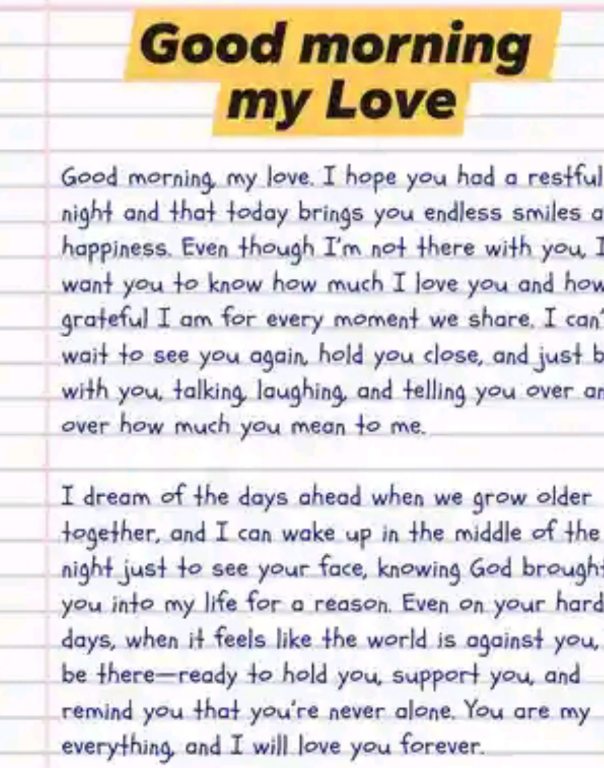 Good morning
my Love
Good morning, my love. I hope you had a restful
night and that today brings you endless smiles a
happiness. Even though I'm not there with you, I
want you to know how much I love you and how
grateful I am for every moment we share. I can'
wait to see you again, hold you close, and just b
with you, talking, laughing, and telling you over an
over how much you mean to me.
I dream of the days ahead when we grow older
together, and I can wake up in the middle of the
night just to see your face, knowing God brought
you into my life for a reason. Even on your hard
days, when it feels like the world is against you,
be there—ready to hold you, support you, and
remind you that you're never alone. You are my
everything, and I will love you forever.